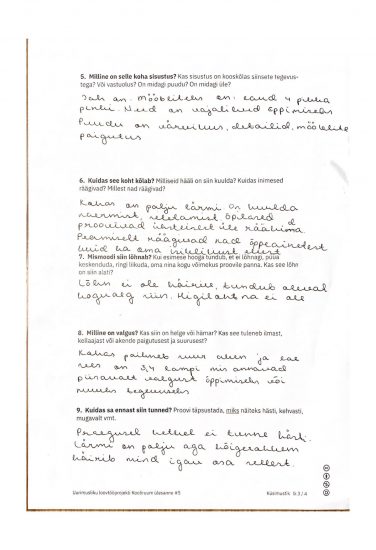 5. Milline on selle koha sisustus? Kas sisustus on kooskõlas siinsete tegevus-
tega? Või vastuolus? On midagi puudu? On midagi üle?
Jah on. Mööbliteks on: laud 4 pikka
pinki. Need on vajalikud õppimiseks
Puudu on värvilius, detailid, mööblite
paigutus
6. Kuidas see koht kõlab? Milliseid hääli on siin kuulda? Kuidas inimesed
räägivad? Millest nad räägivad?
Kohas on palju lärmi on kuulda
naermist, seletamist. Õpilased
proovivad üksteisest üle rääkima
Peamiselt räägivad nad õppeainetest
kuid ka oma isiklikust elust
7. Mismoodi siin lõhnab? Kui esimese hooga tundub, et ei lõhnagi, püüa
keskenduda, ringi liikuda, oma nina kogu võimekus proovile panna. Kas see lõhn
on siin alati?
Lõhn ei ole häiriv, tundub oleval
koguaeg siin. Higilahtna ei ole
8. Milline on valgus? Kas siin on helge või hämar? Kas see tuleneb ilmast,
kellaajast või akende paigutusest ja suurusest?
Kohas paikneb suur aken ja ka
sees on 3,4 lampi mis annavad
piisavalt valgust õppimiseks või
muuks tegevuseks
9. Kuidas sa ennast siin tunned? Proovi täpsustada, miks näiteks hästi, kehvasti,
mugavalt vmt.
Praegusel hetkel ei tunne hästi.
Lärmi on palju aga kõigerohkem
häirib mind igau osa sellest.
Uurimusliku loovtööprojekti Kooliruum ülesanne #5
Küsimustik lk 3 / 4